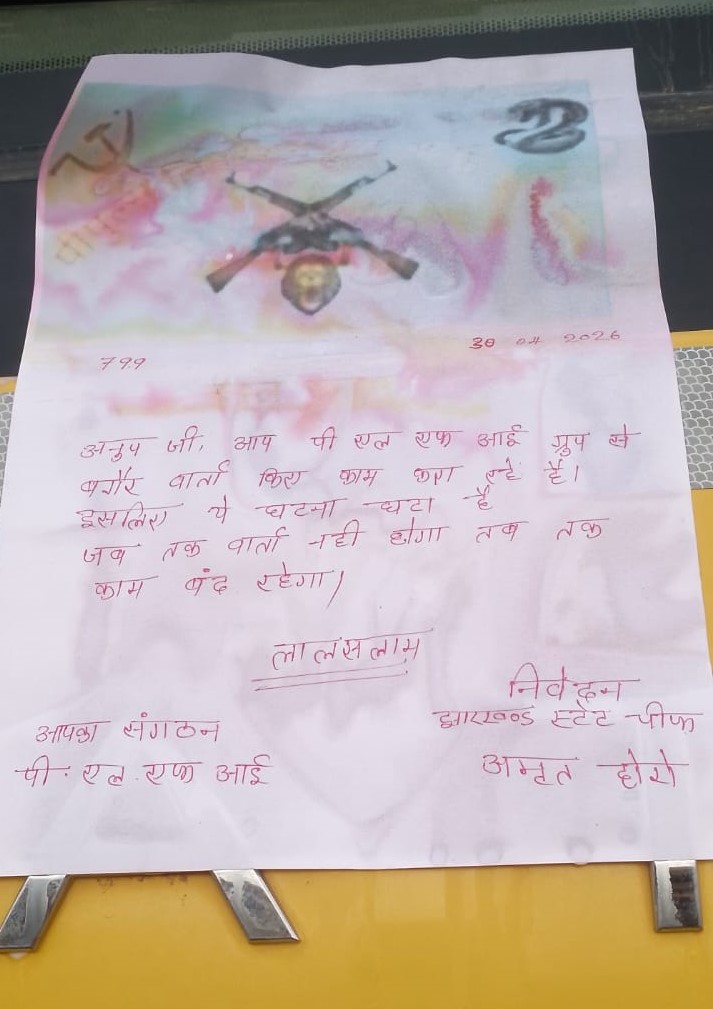 30 04 2026
799
अनुप जी, आप पी एल एफ आई ग्रुप से
बगैर वार्ता किए काम करा रहे है।
इसलिए ये घटना घटा है
जब तक वार्ता नही होगा तब तक
काम बंद रहेगा।
लालसलाम
निवेदन
झारखण्ड स्टेट चीफ
अमृत होरो
आपका संगठन
पी. एल. एफ आई